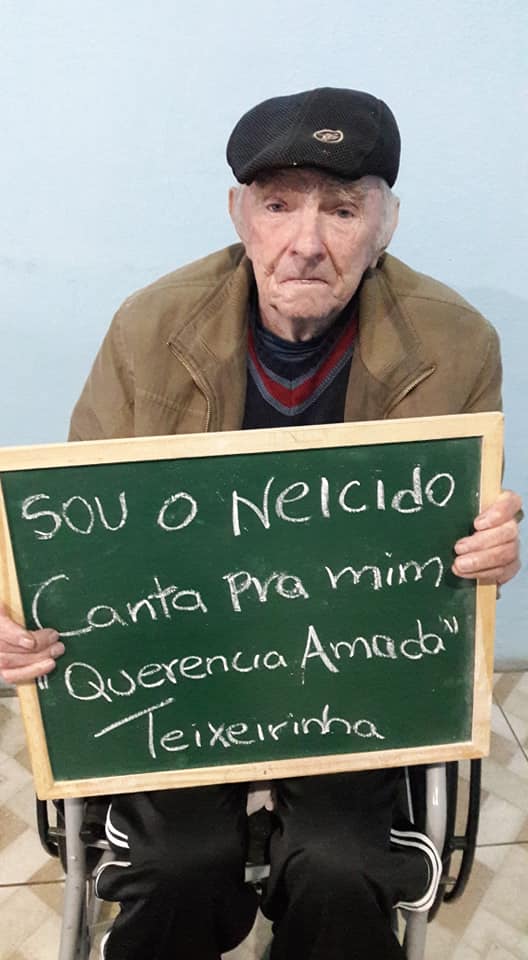 SOU O NELCIDO
Canta pra mim
"Querencia Amada"
Teixeirinha